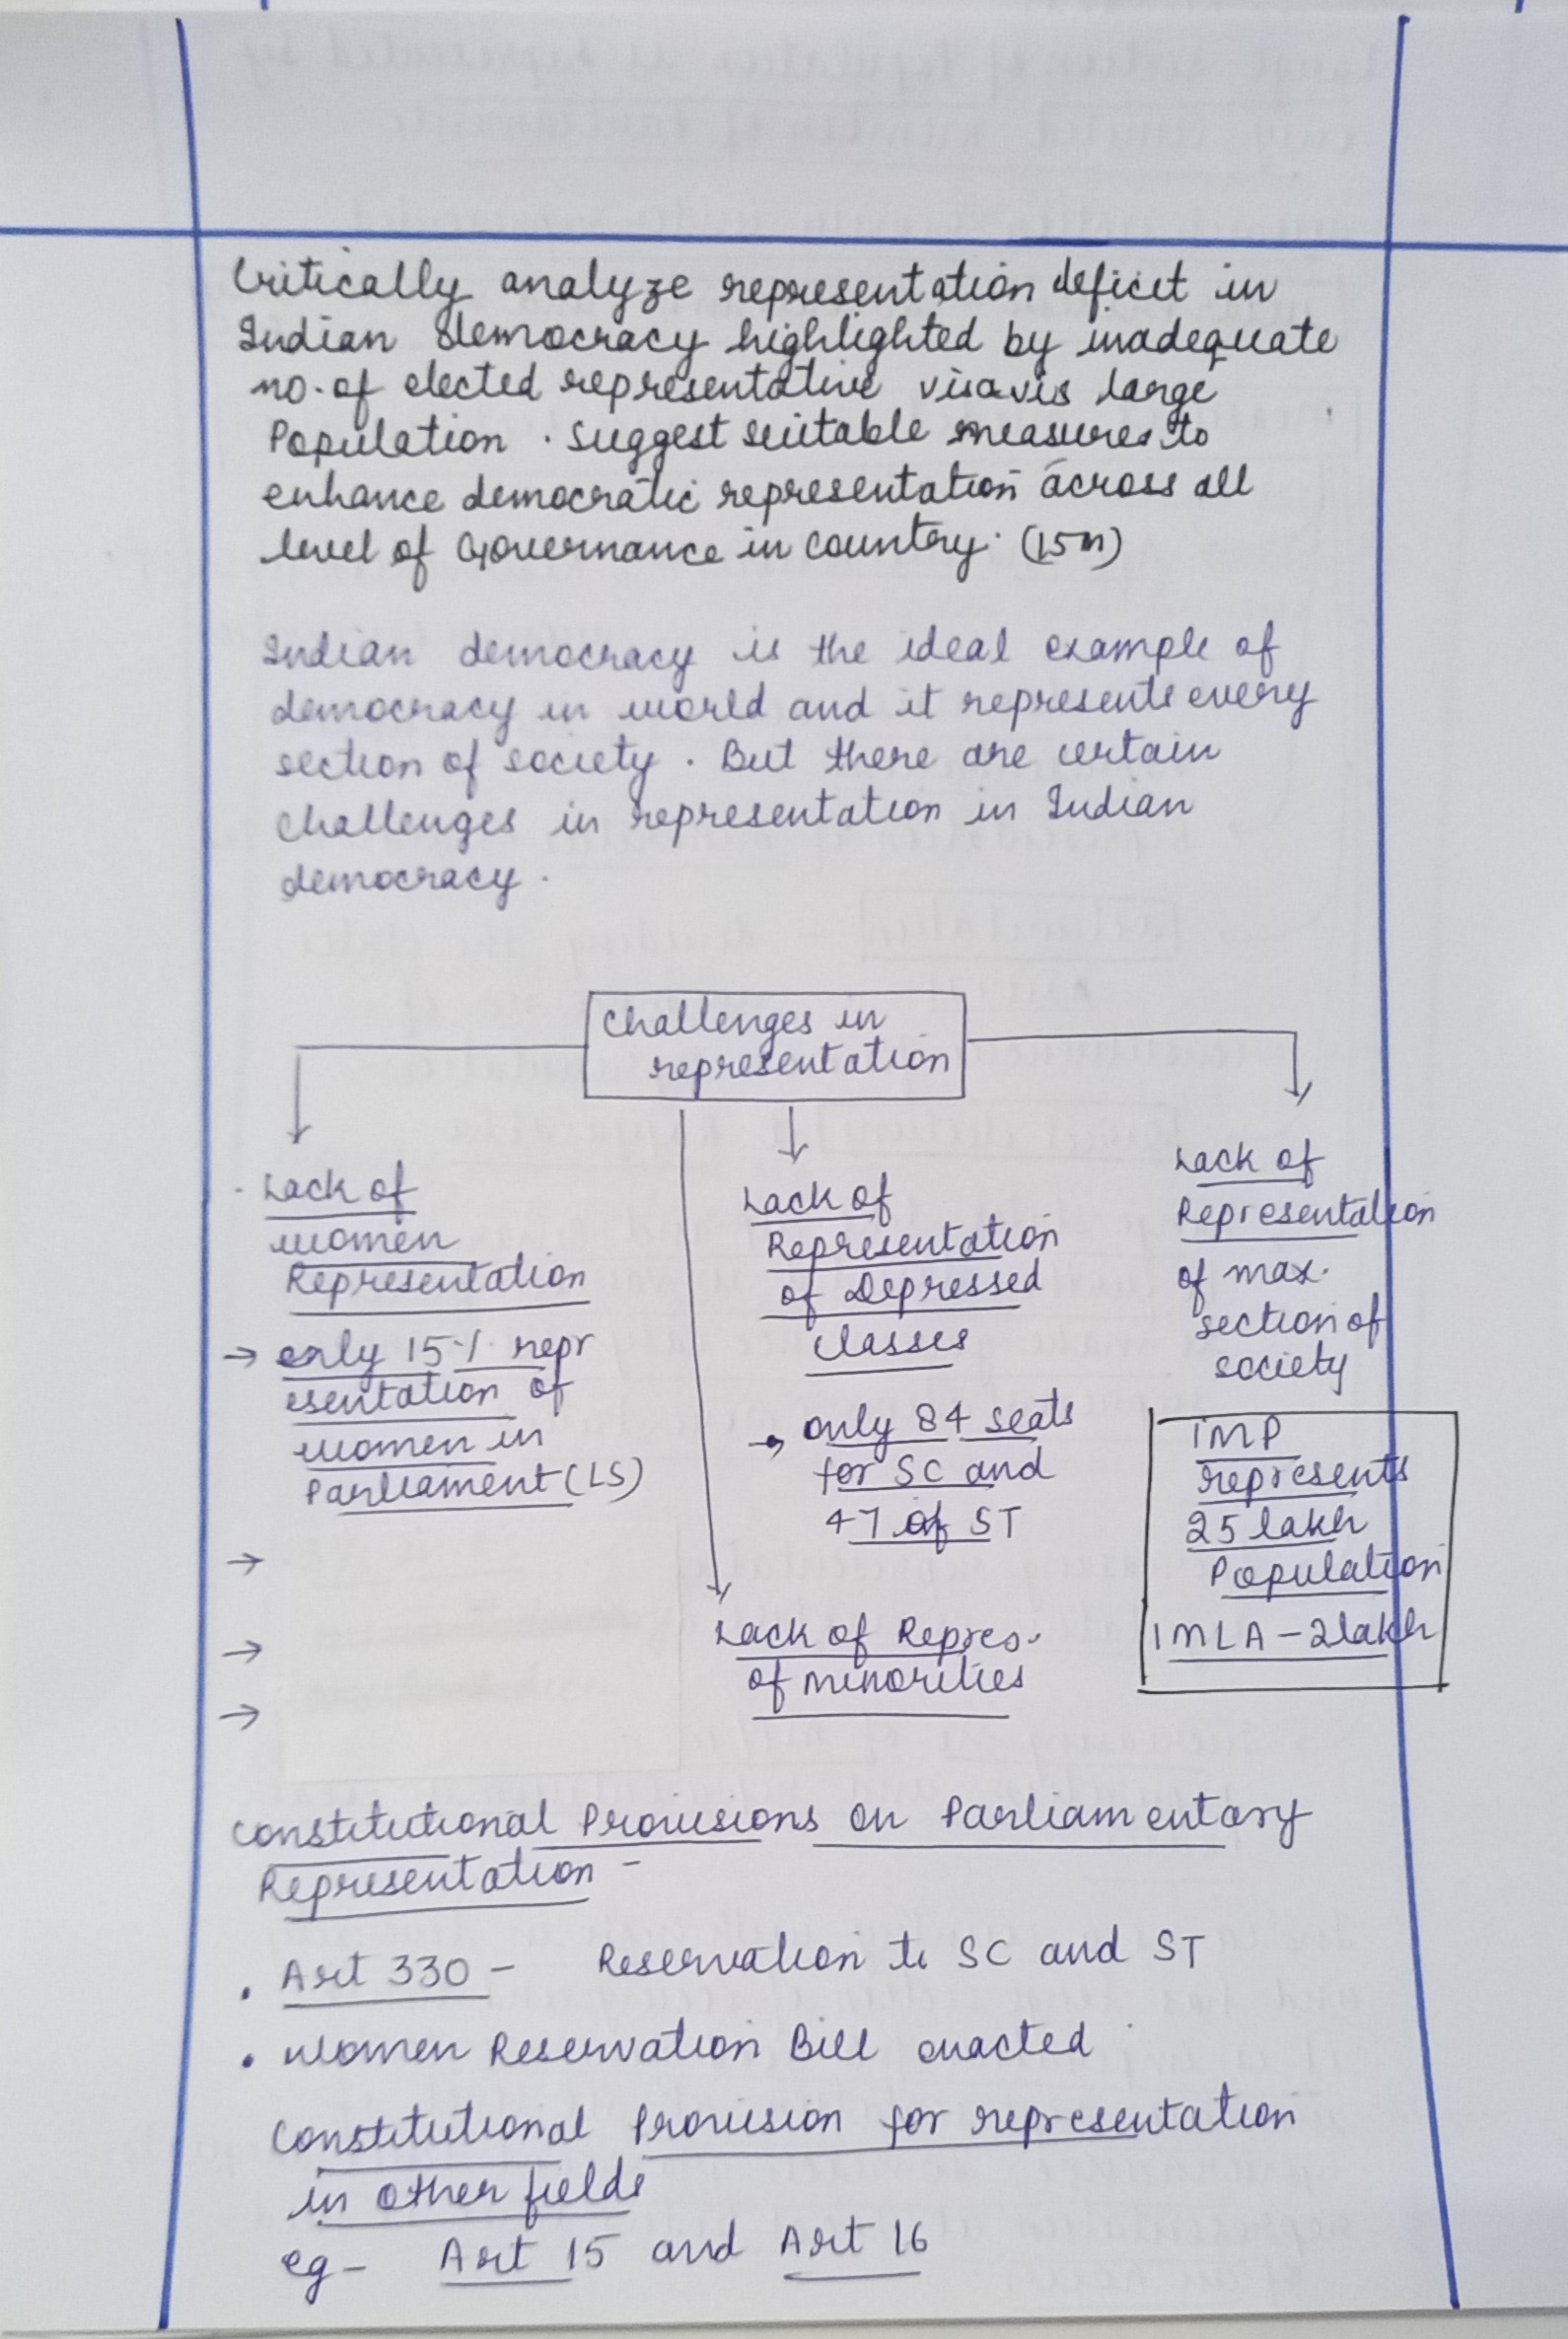 Critically analyze representation deficit in
Indian democracy highlighted by inadequate
no. of elected representative visavis large
Population. Suggest suitable measures to
enhance democratic representation across all
level of Governance in country. (15m)
Indian democracy is the ideal example of
democracy in world and it represents every
section of society. But there are certain
challenges in representation in Indian
democracy.
Challenges in
representation
Lack of
women
Representation
→ only 15% repr
esentation of
women in
Parliament (LS)
→
→
→
Lack of
Representation
of Depressed
classes
→ only 84 seats
for SC and
47 of ST
Lack of Repres.
of minorities
Lack of
Representation
of max.
section of
society
1MP
represents
25 lakh
Population
1MLA - 2lakh
Constitutional Provisions on Parliamentary
Representation -
• Art 330 - Reservation to SC and ST
• Women Reservation Bill enacted
Constitutional Provision for representation
in other fields
eg - Art 15 and Art 16